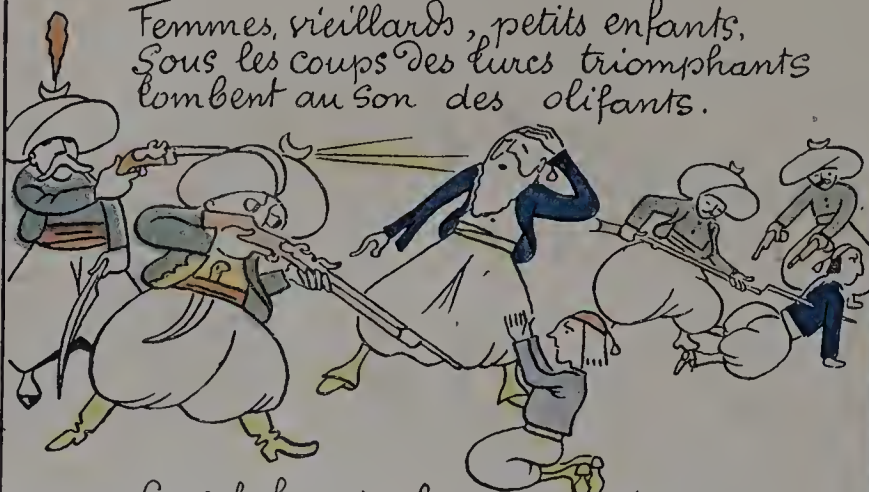 Femmes, vieillards, petits enfants,
Sous les coups des turcs triomphants
tombent au son des olifants.